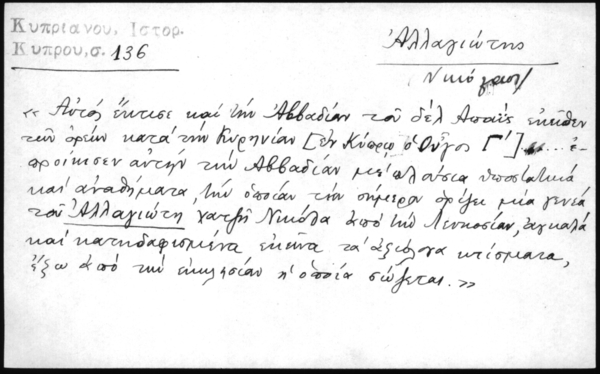 Κυπριανου, Ιστορ.
Κυπρου, σ. 136
Ἀλλαγιώτης
« Αὐτὸς ἔκτισε καὶ τὴν Ἀββαδίαν τοῦ δὲλ Απαὶς ἐκεῖθεν
τῶν ὀρέων κατὰ τὴν Κυρηνίαν [ἐν Κύπρῳ ὁ Οὖγος Γ'] ..... ἐ-
προίκισεν αὐτὴν τὴν Ἀββαδίαν μὲ πλούσια ὑποστατικὰ
καὶ ἀναθήματα, τὴν ὁποίαν τὴν σήμερον ὁρίζει μία γενεὰ
τοῦ Ἀλλαγιώτη χατζῆ Νικόλα ἀπὸ τὴν Λευκοσίαν, ἀγκαλὰ
καὶ κατηδαφισμένα ἐκεῖνα τὰ ἀξιόλογα κτίσματα,
ἔξω ἀπὸ τὴν ἐκκλησίαν ἡ ὁποία σώζεται. »